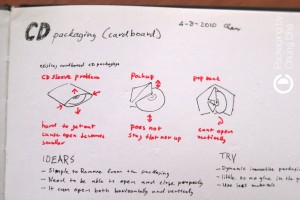 CD packaging (cardboard)
4-8-2010
existing cardboard CD packaging
CD sleeve problem
Packup
pop out
hard to get out
case open becomes
smaller
Does not
stay that not up
cant open
vertically
IDEARS
- Simple to Remove from the packaging
- Need to be able to open and close properly
- It can open both horizontally and vertically
TRY
- Dynamic innovative packaging
- little or no glue in the
- Use less materials
Packaging by
Chung Cha